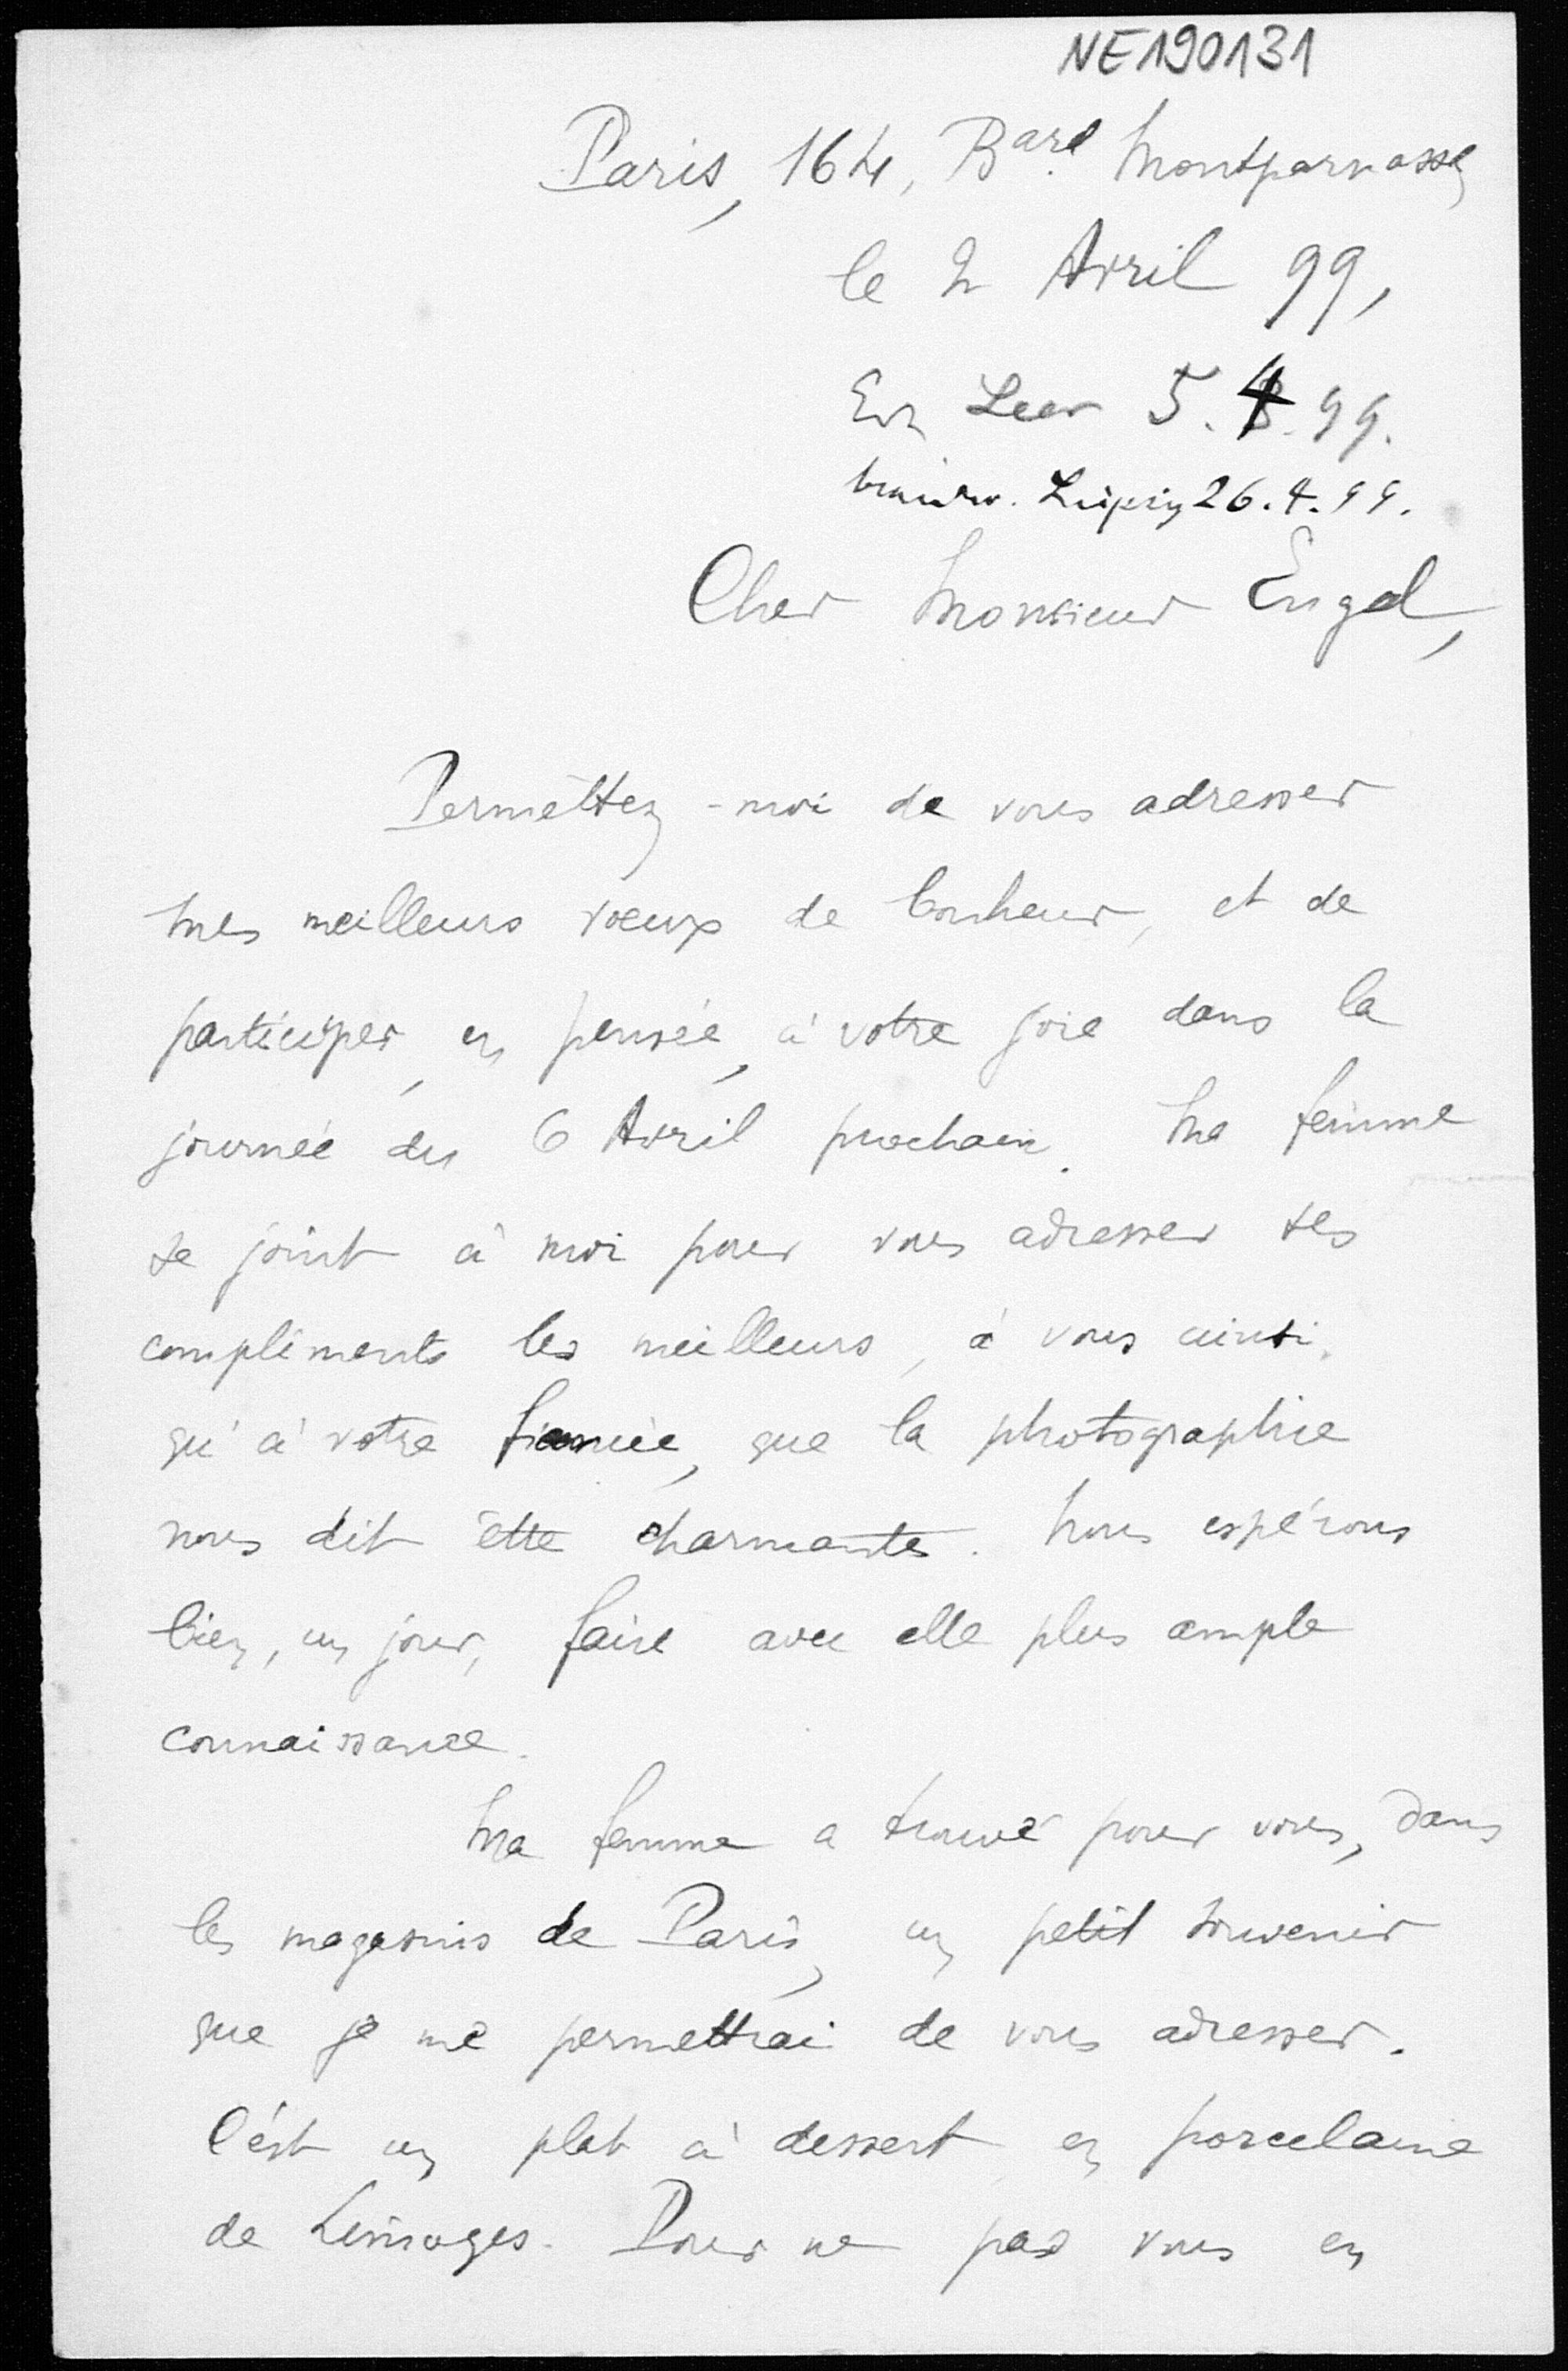 NE190131
Paris, 164, Bard Montparnasse,
le 2 Avril 99,
Erh Leer 5.4.99.
Leipzig 26.4.99.
Cher Monsieur Engel,
Permettez-moi de vous adresser
mes meilleurs voeux de bonheur, et de
participer, en pensée, à votre joie dans la
journée du 6 Avril prochain. Ma femme
se joint à moi pour vous adresser ses
compliments les meilleurs, à vous ainsi
qu'à votre fiancée, que la photographie
nous dit être charmante. Nous espérons
bien, un jour, faire avec elle plus ample
connaissance.
Ma femme a trouvé pour vous, dans
les magasins de Paris, un petit souvenir
que je me permettrai de vous adresser.
C'est un plat à dessert en porcelaine
de Limoges. Pour ne pas vous en